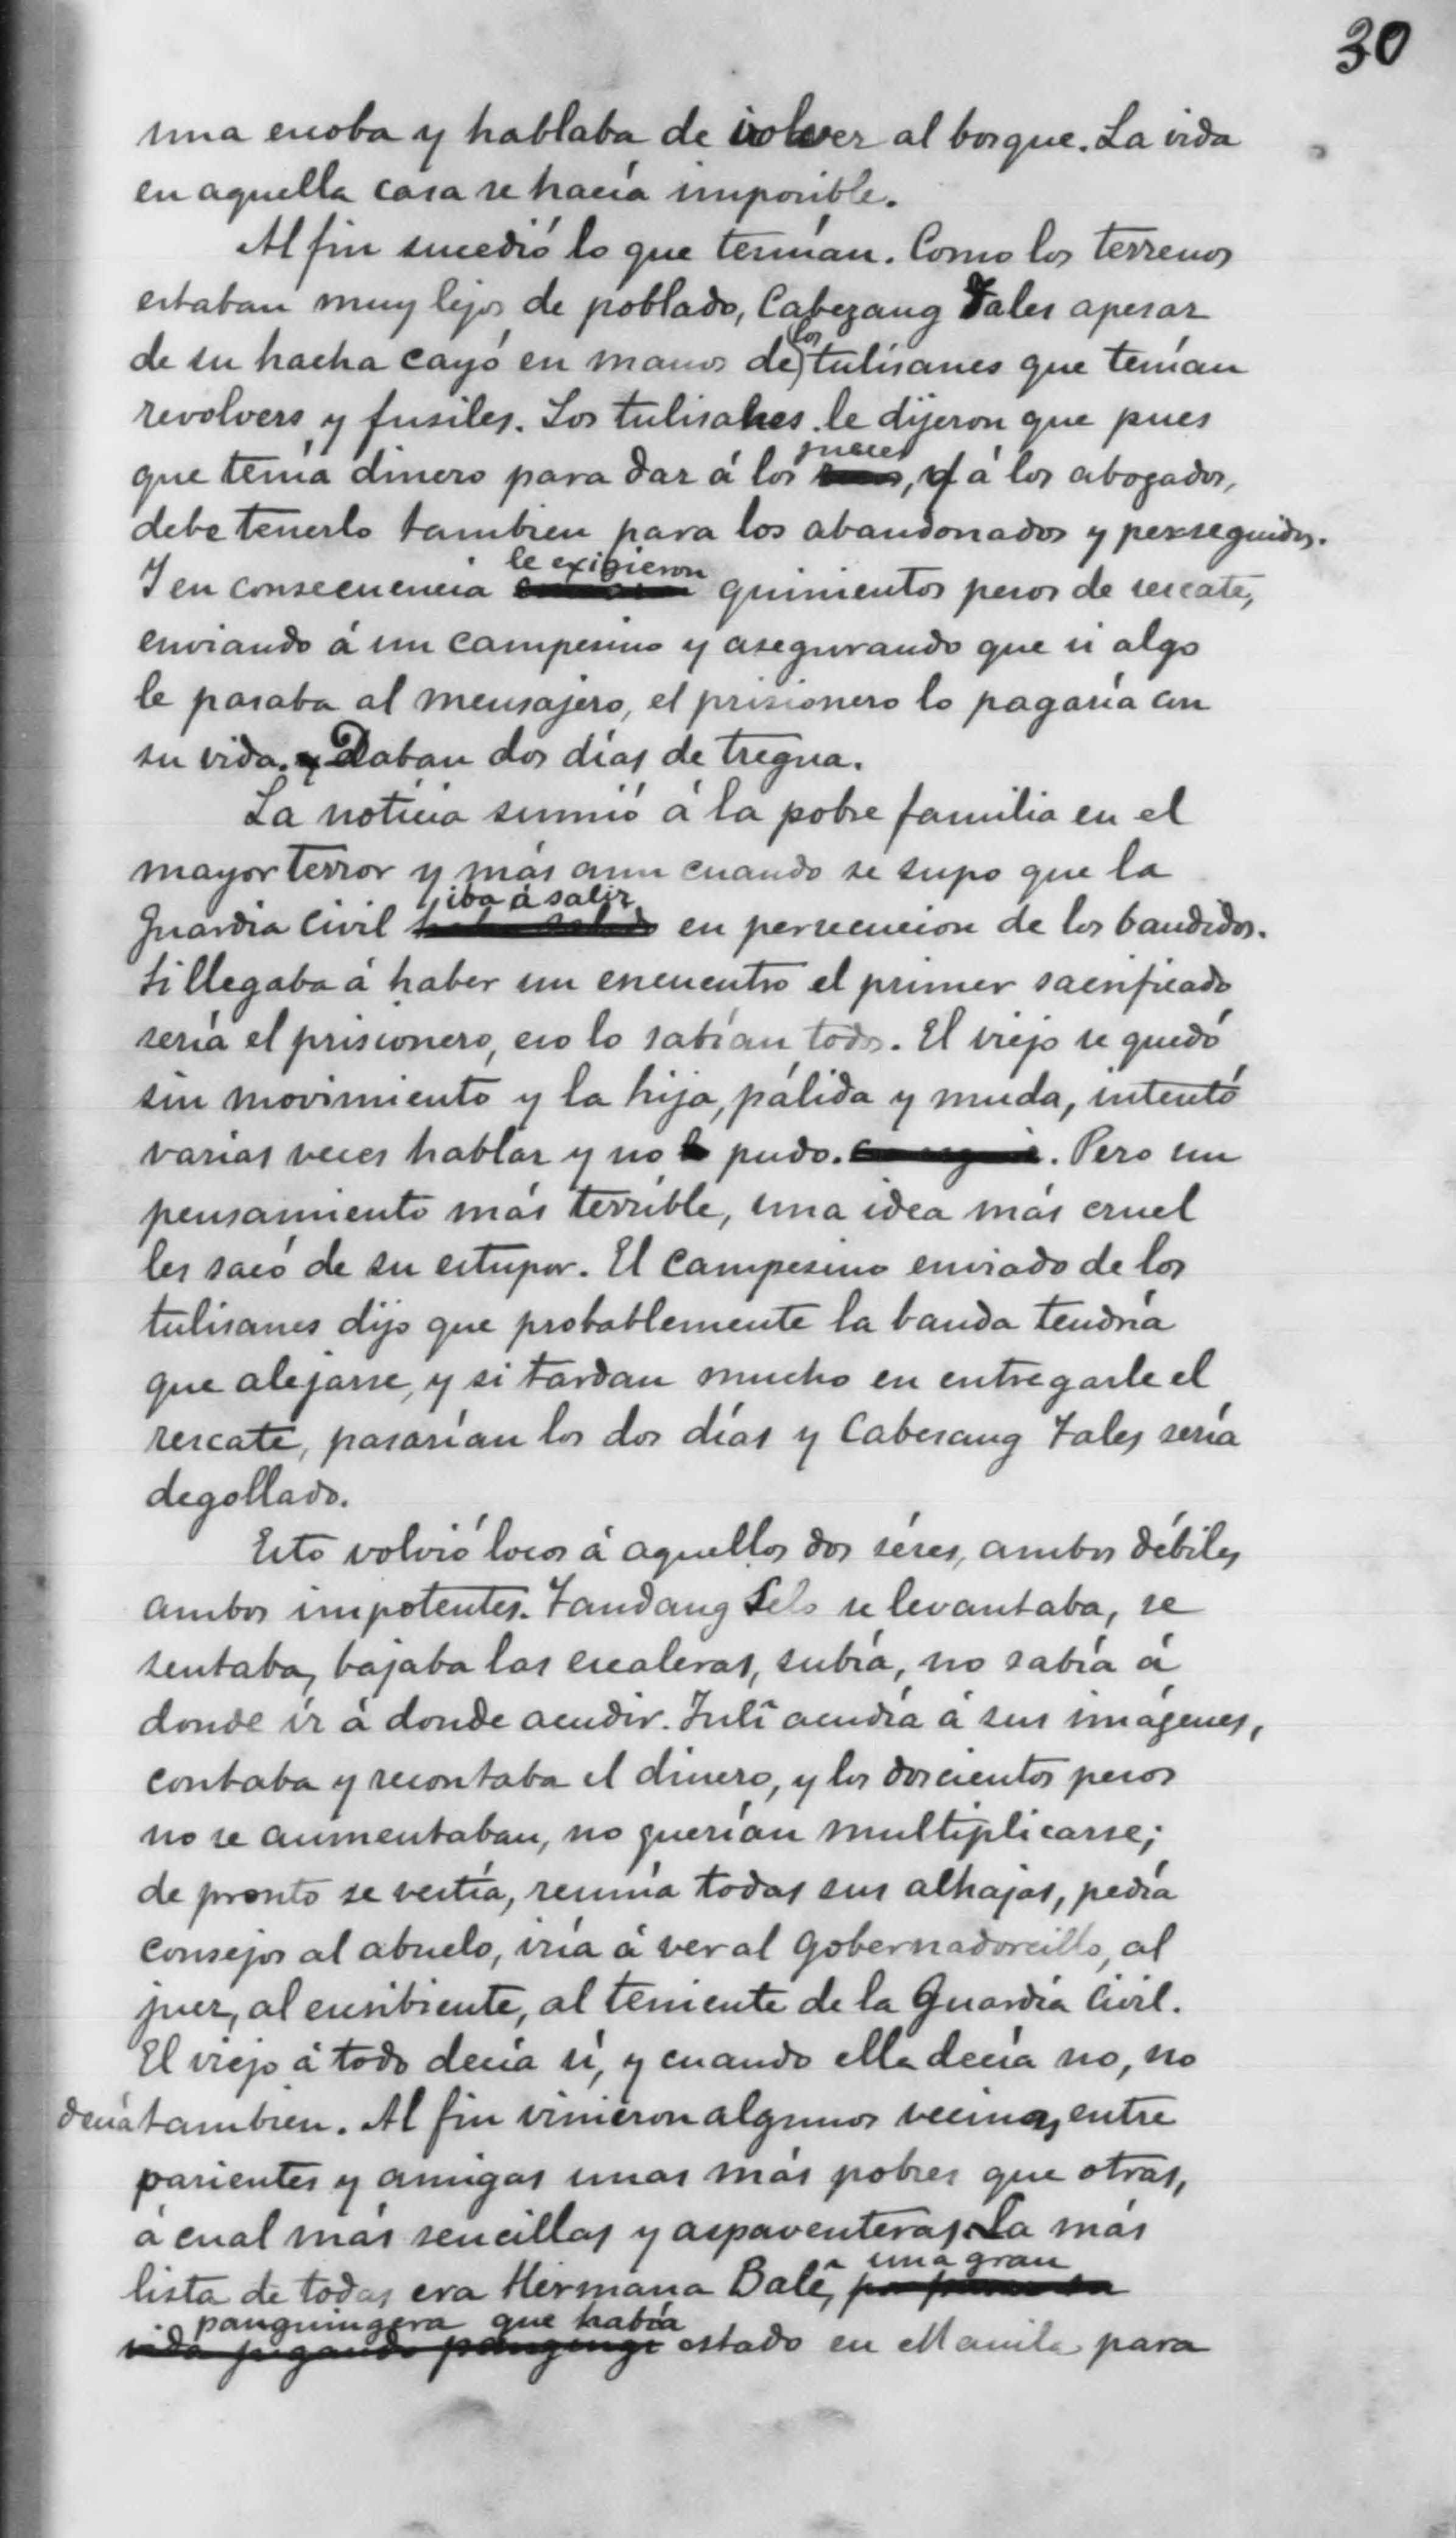 30
una escoba y hablaba de volver al bosque. La vida
en aquella casa se hacía imposible.
Al fin sucedió lo que temían. Como los terrenos
estaban muy lejos de poblado, Cabezang Tales apesar
de su hacha cayó en manos de los tulisanes que tenían
revolvers y fusiles. Los tulisanes le dijeron que pues
que tenía dinero para dar á los jueces, y á los abogados,
debe tenerlo tambien para los abandonados y perseguidos.
Y en consecuencia le exigieron quinientos pesos de rescate,
enviando á un campesino y asegurando que si algo
le pasaba al mensajero, el prisionero lo pagaría con
su vida. Daban dos días de tregua.
La noticia sumió á la pobre familia en el
mayor terror y más aun cuando se supo que la
Guardia Civil iba á salir en persecucion de los bandidos.
Si llegaba á haber un encuentro el primer sacrificado
sería el prisionero, eso lo sabían todos. El viejo se quedó
sin movimiento y la hija, pálida y muda, intentó
varias veces hablar y no pudo. Pero un
pensamiento más terrible, una idea más cruel
les sacó de su estupor. El campesino enviado de los
tulisanes dijo que probablemente la banda tendría
que alejarse, y si tardan mucho en entregarle el
rescate, pasarían los dos días y Cabesang Tales sería
degollado.
Esto volvió locos á aquellos dos séres, ambos débiles
ambos impotentes. Tandang Selo se levantaba, se
sentaba, bajaba las escaleras, subía, no sabía á
donde ir á donde acudir. Julî acudía á sus imágenes,
contaba y recontaba el dinero, y los doscientos pesos
no se aumentaban, no querían multiplicarse;
de pronto se vestía, reunía todas sus alhajas, pedía
consejos al abuelo, iría á ver al gobernadorcillo, al
juez, al escribiente, al teniente de la Guardia Civil.
El viejo á todo decía sí, y cuando ella decía no, no
decía tambien. Al fin vinieron algunos vecinas, entre
parientes y amigas unas más pobres que otras,
á cual más sencillas y aspaventeras. La más
lista de todas era Hermana Balê, una gran
panguinguera que había estado en Manila para